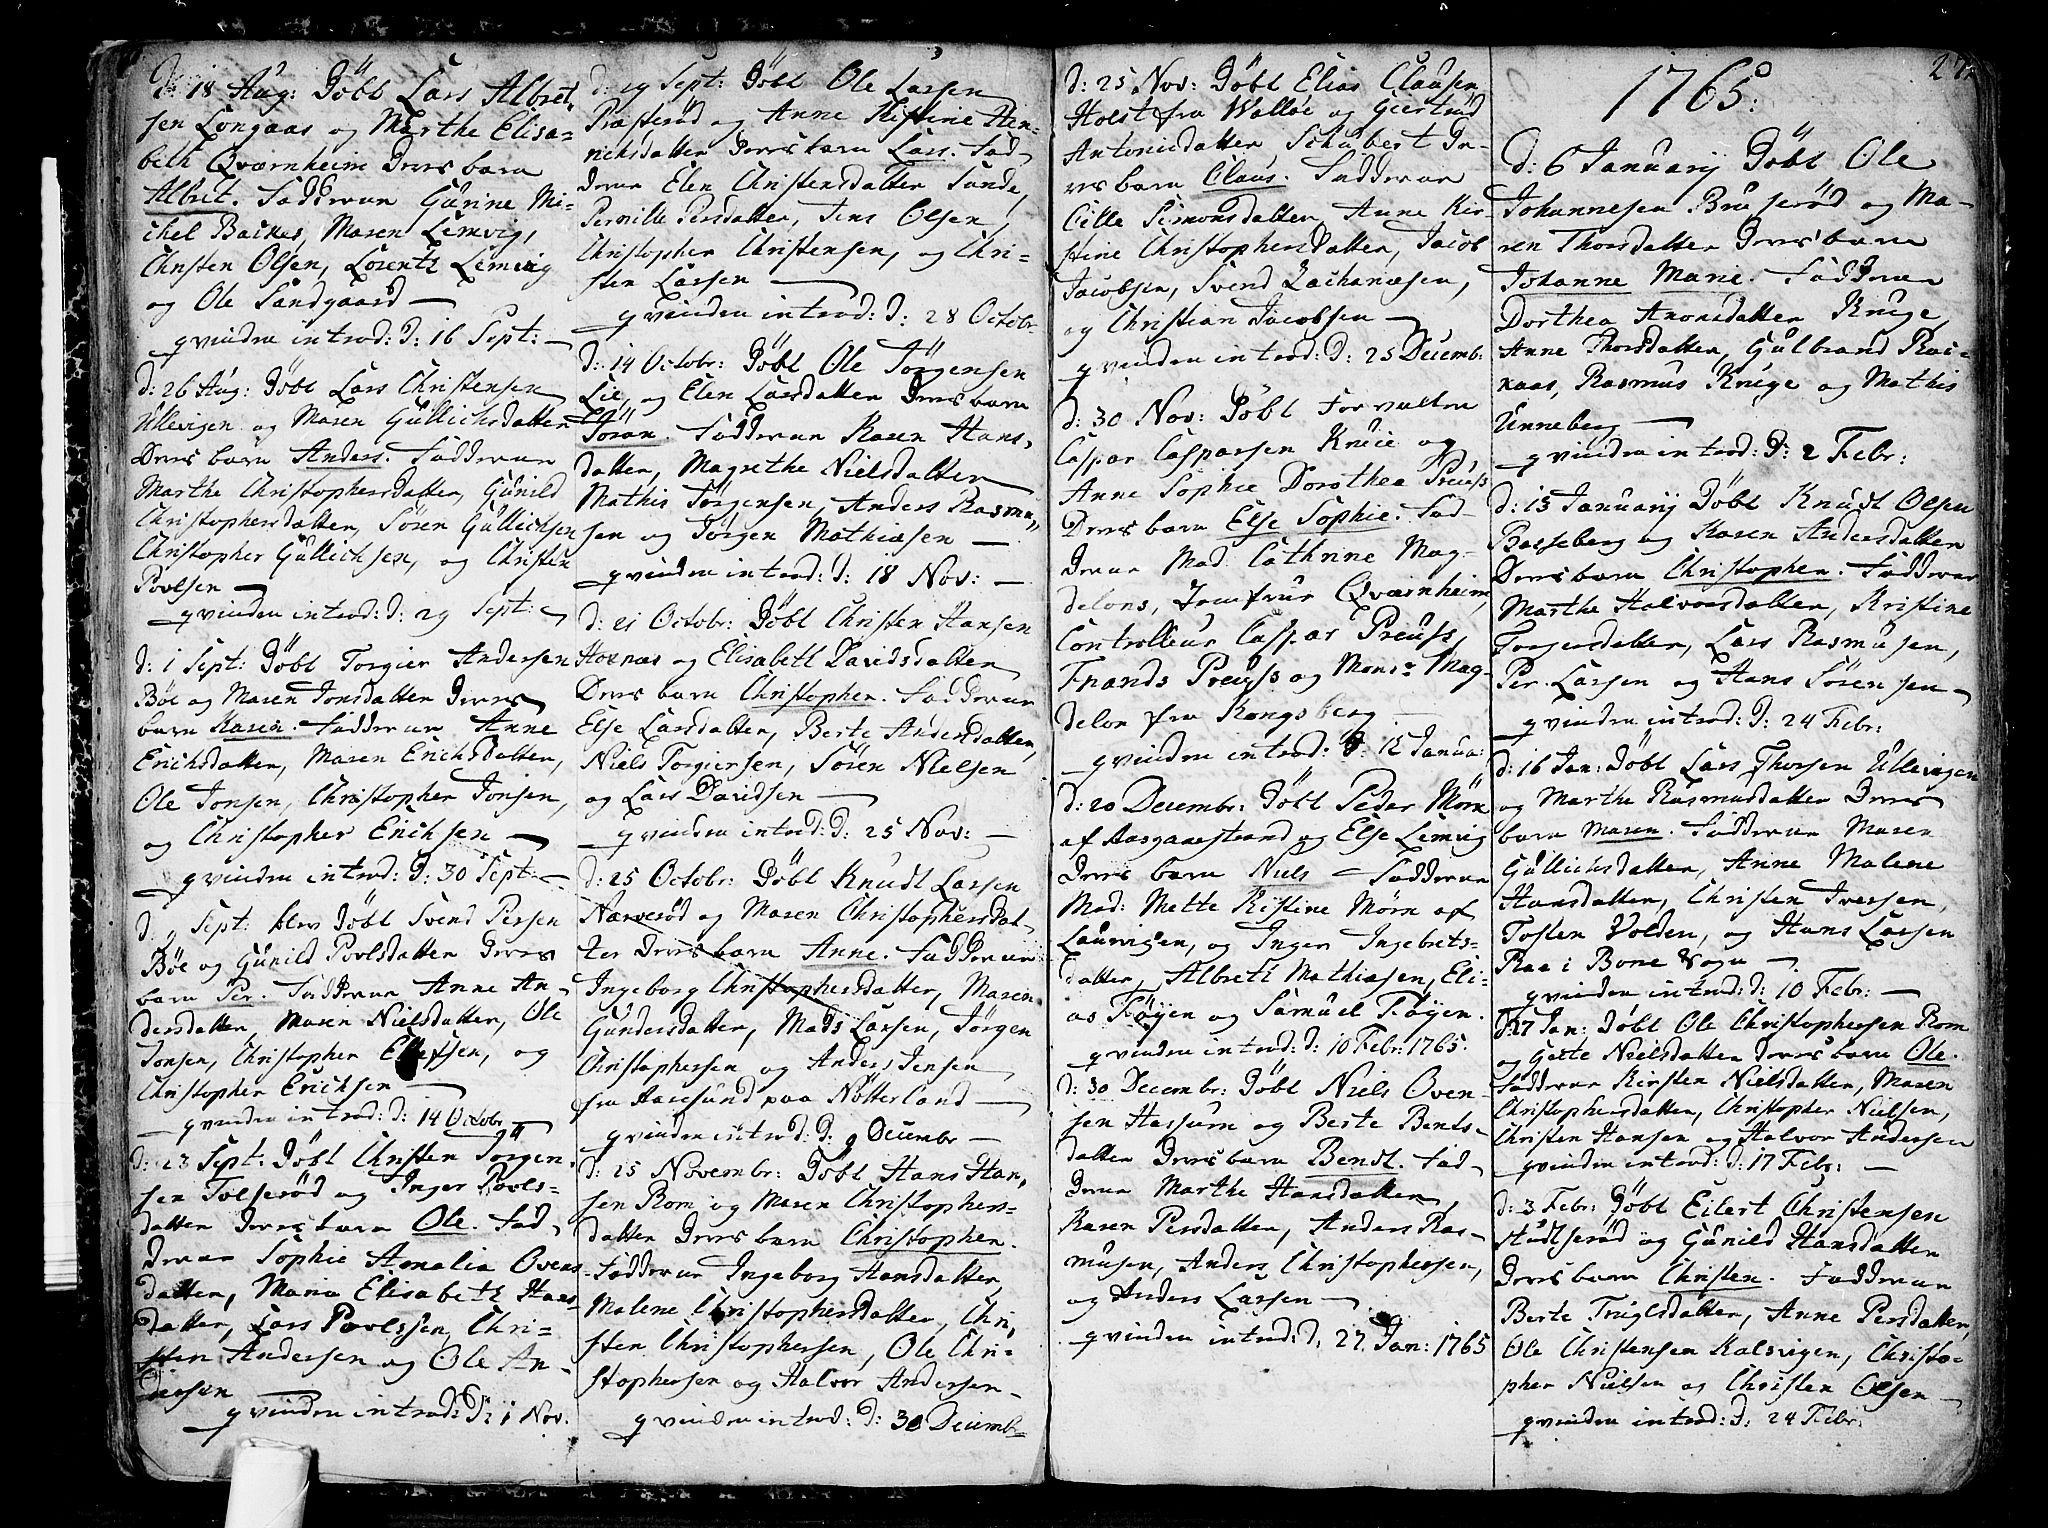 d: 18 Aug: Döbt Lars Albret,
sen Longaas og Marthe Elisa-
beth Qværnheim deres barn
Albret. Fadderne Gurine Mi-
chel Backes, Maren Lemvig,
Christen Olsen, Lorentz Lemvig
og Ole Sandgaard —
qvinden introd: d: 16 Sept: —
d: 26 Aug: Döbt Lars Christensen
Ullevigen og Maren Gullichsdatter
Deres barn Anders. Fadderne
Marthe Christophersdatter, Gunild
Christophersdatter, Sören Gullichsen
Christopher Gullichsen, og Christen
Povlsen —
qvinden introd: d: 29 Sept:
d: 1 Sept: Döbt Torgier Andersen
Böe og Maren Jonsdatter deres
barn Karen. Fadderne Anne
Erichsdatter, Maren Erichsdatter,
Ole Jonsen, Christopher Jonsen,
og Christopher Erichsen —
qvinden introd: d: 30 Sept: —
d: 9 Sept: blev Döbt Svend Persen
Böe og Gunild Povlsdatter deres
barn Per. Fadderne Anne An-
dersdatter, Maren Nielsdatter, Ole
Jonsen, Christopher Ellefsen, og
Christopher Erichsen —
qvinden introd: d: 14 Octobr
d: 23 Sept: Döbt Christen Törgen
sen Tolseröd og Inger Povls-
datter deres barn Ole. Fad-
derne Sophie Amalia Ovens
datter, Maria Elisabeth Hans
datter, Lars Povlssen, Chri-
sten Andersen og Ole An-
dersen
qvinden introd: d: 1 Nov.
d: 29 Sept: Döbt Ole Larsen
Præsteröd og Anne Kistine Hen-
richsdatter deres barn Lars. Fad-
derne Elen Christensdatter Sande,
Pernille Persdatter, Jens Olsen,
Christopher Christensen, og Chri-
sten Larsen —
qvinden introd: d: 28 Octobr
d: 14 Octobr: Döbt Ole Jörgensen
Lie, og Elen Larsdatter deres barn
Jöran. Fadderne Karen Hans,
datter, Magrethe Nielsdatter
Mathis Jörgensen, Anders Rasmu,
sen og Jörgen Mathiasen —
qvinden introd: d: 18 Nov: —
d: 21 Octobr: Döbt Christen Hansen
Hoxnæs og Elisabeth Davidsdatter
Deres barn Christopher. Fadderne
Else Larsdatter, Berte Andersdatter,
Niels Torgiersen, Sören Nielsen
og Lars Davidsen —
qvinden introd: d: 25 Nov: —
d: 25 Octobr: Döbt Knudt Larsen
Narveröd og Maren Christophersdat-
ter deres barn Anne. Fadderne
Ingeborg Christophersdatter, Maren
Gundersdatter, Mads Larsen, Jörgen
Christophersen og Anders Jensen,
fra Aaresund paa Nötterland —
qvinden introd: d: 9 Decembr —
d: 25 Novembr: Döbt Hans Han,
sen Rom og Maren Christophers-
datter Deres barn Christopher.
Fadderne Ingeborg Hansdatter,
Malene Christophersdatter, Chri,
sten Christophersen, Ole Chri-
stophersen og Halvor Andersen —
qvinden introd: d: 30 Decemb-
d: 25 Nov: Döbt Elias Clausen
Holst fra Walløe og Giertrud
Antonisdatter Schubert De-
res barn Claus. Fadderne
Cille Simonsdatter, Anne Kir-
stine Christophersdatter, Jacob
Jacobsen, Svend Zachariæsen,
og Christian Jacobsen —
qvinden introd: d: 25 Decemb:
d: 30 Nov: Döbt Forvalter
Caspar Casparsen Knie og
Anne Sophie Dorothea Preuss
Deres barn Else Sophie. Fad-
derne Mad. Cathrine Mag-
delons, Jomfrue Qværnheim,
Controlleur Caspar Preuss,
Frands Preuss og Monsr Mag-
delon fra Kongsberg —
qvinden introd: d: 12 Janua:
d: 20 Decembr: Döbt Peder Mörn
af Aasgaarstrand og Else Lemvig
Deres barn Niels — Fadderne
Mad: Mette Kistine Mörn af
Laurvigen, og Inger Ingebrets-
datter, Albreth Mathiasen, Eli-
as Föyen og Samuel Föyen.
qvinden introd: d: 10 Febr: 1765.
d: 30 Decembr: Döbt Niels Oven-
sen Hassum og Berte Bents-
datter Deres barn Bendt. Fad-
derne Marthe Hansdatter,
Karen Persdatter, Anders Ras-
musen, Anders Christophersen,
og Anders Larsen —
qvinden introd: d: 27 Jan: 1765
1765.
d: 6 Januarij Döbt Ole
Johannesen Bruseröd og Ma-
ren Thorsdatter Deres barn
Johanne Marie. Fadderne
Dorthea Aronsdatter Kruge,
Anne Thorsdatter, Gulbrand Ras-
naas, Rasmus Kruge og Mathis
Unneberg —
qvinden introd: d: 2 Febr:
d: 13 Januarij Döbt Knudt Olsen
Basseberg og Karen Andersdatter
Deres barn Christopher. Fadderne
Marthe Halvorsdatter, Kristine
Torgersdatter, Lars Rasmusen,
Per Larsen og Hans Sörensen —
qvinden introd: d: 24 Febr:
d: 16 Jan: Döbt Lars Thorsen Ullevigen
og Marthe Rasmusdatter Deres
barn Maren. Fadderne Maren
Gullichsdatter, Anne Malene
Hansdatter, Christen Iversen,
Tosten Volden, og Hans Larsen
Raa i Borre Sogn —
qvinden introd: d: 10 Febr: —
d: 27 Jan: Döbt Ole Christophersen Rom
og Gerte Nielsdatter deres barn Ole.
Fadderne Kirsten Nielsdatter, Maren
Christophersdatter, Christopher Nielsen,
Christen Hansen og Halvor Andersen
qvinden introd: d: 17 Febr: —
d: 3 Febr: Döbt Eilert Christensen
Studtseröd og Gunild Hansdatter
Deres barn Christen. Fadderne
Berte Truglsdatter, Anne Persdatter,
Ole Christensen Kalsvigen, Christo-
pher Nielsen og Christen Olsen —
qvinden introd: d: 24 Febr: